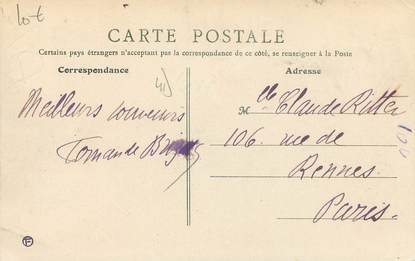 10 €
CARTE POSTALE
Certains pays étrangers n'acceptant pas la correspondance de ce côté, se renseigner à la Poste
Correspondance
Adresse
Meilleurs souvenirs
Mlle Claude Ritter
106. rue de
Rennes.
Paris.